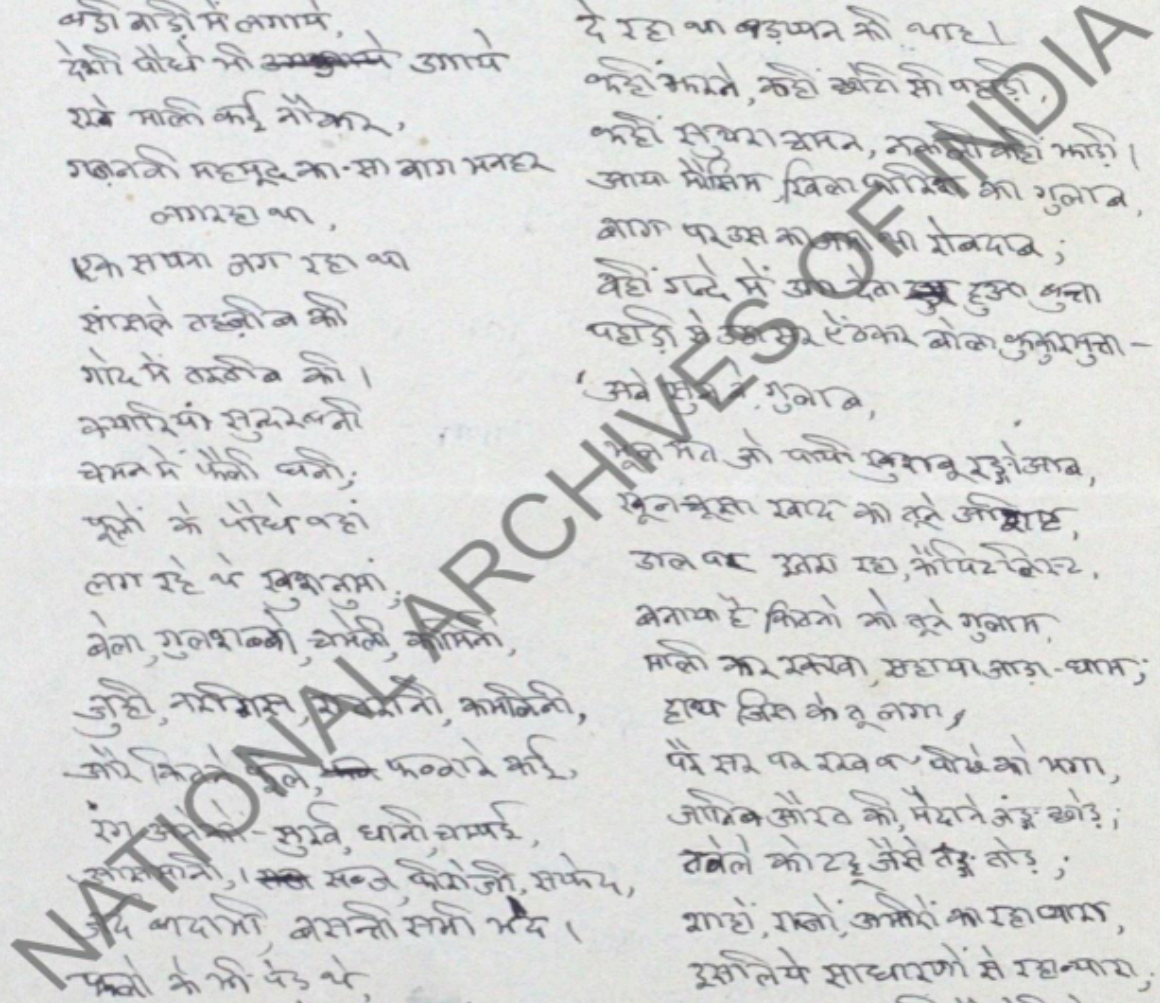 बड़ी बाड़ी में लगाये,
देशी पौधे भी उगाये
रखे माली कई नौकर,
गज़नवी महमूद का-सा बाग मनहर
लग रहा था,
एक सपना जग रहा था
सांस ले तहज़ीब की
गोद में तरतीब की।
क्यारियां सुन्दर बनी
चमन में फैली घनी;
फूलों के पौधे वहां
लग रहे थे खुशनुमां;
बेला, गुलशब्बो, चमेली, कामिनी,
जुही, नरगिस, रातरानी, कमलिनी,
और कितने फूल, फव्वारे कई,
रंग अनेकों - सुर्ख, धानी, चम्पई,
आसमानी, सब्ज, फीरोजी, सफेद,
जर्द बादामी, बसन्ती सभी भेद।
फलों के भी पेड़ थे,
दे रहा था बड़प्पन की थाह।
कहीं झरने, कहीं छोटी सी पहाड़ी,
कहीं सुथरा चमन, नकली कहीं झाड़ी।
आया मौसिम, खिला फारिस का गुलाब,
बाग पर उस का जमा था रोबदाब;
वहीं गन्दे में उगा देता हुआ बुत्ता
पहाड़ी से उठा सर ऐंठकर बोला कुकुरमुत्ता—
'अबे सुन बे, गुलाब,
भूल मत जो पायी खुशबू रङ्गोआब,
खून चूसा खाद का तूने अशिष्ट,
डाल पर इतरा रहा, कैपिटलिस्ट,
बनाया है कितनों को तूने गुलाम,
माली कर रक्खा, सहाया जाड़ा-घाम;
हाथ जिस के तू लगा,
पैर सर पर रखव पीछे को भगा,
जानिब औरत की, मैदाने जङ्ग छोड़;
तबेले को टट्टू जैसे तङ्ग तोड़;
शाहों, राजों, अमीरों का रहा प्यारा,
इसलिये साधारणों से रहा न्यारा,
NATIONAL ARCHIVES OF INDIA